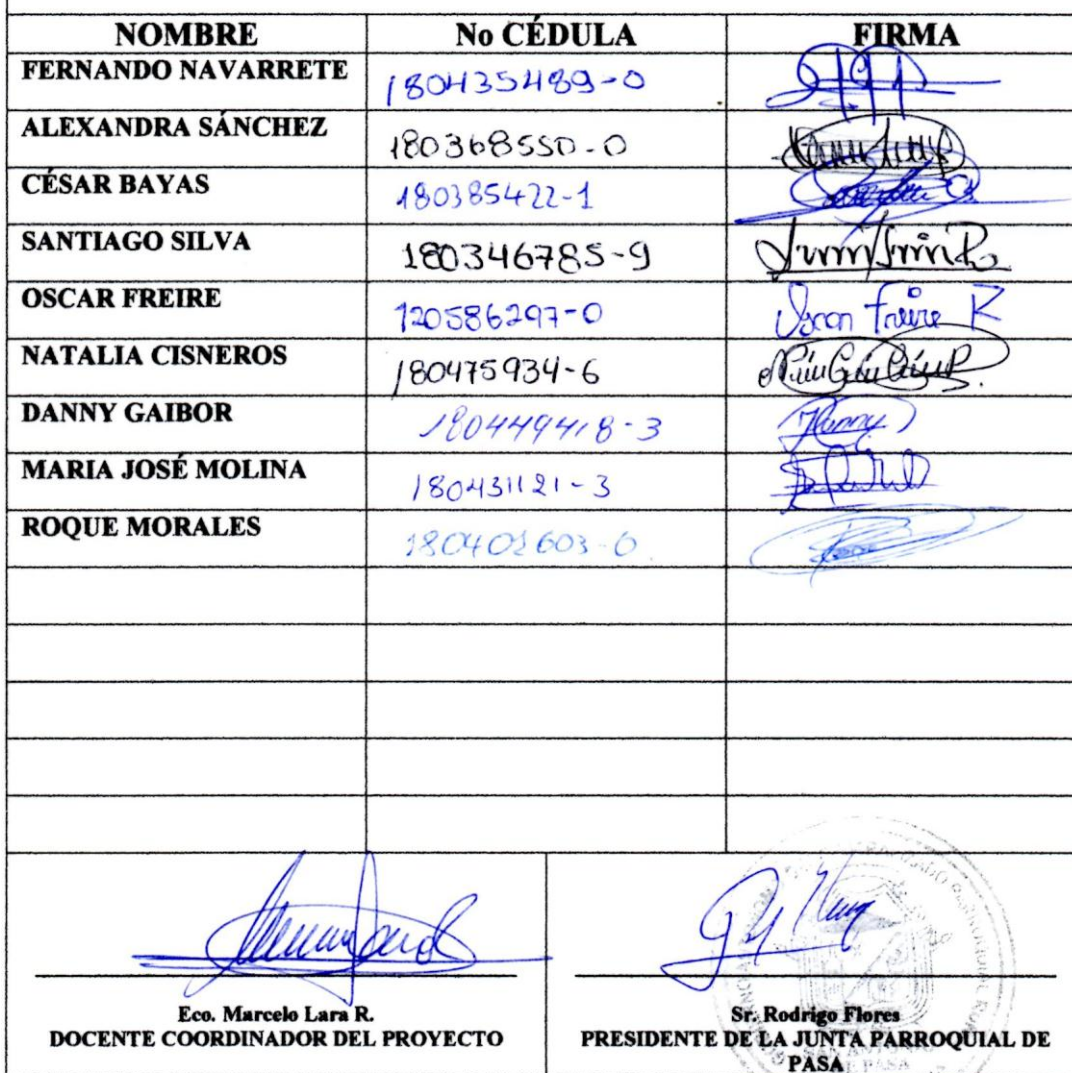 NOMBRE No CÉDULA FIRMA
FERNANDO NAVARRETE 180435489-0
ALEXANDRA SÁNCHEZ 180368550-0
CÉSAR BAYAS 180385422-1
SANTIAGO SILVA 180346785-9
OSCAR FREIRE 120586297-0 Oscar Freire R
NATALIA CISNEROS 180475934-6
DANNY GAIBOR 180449418-3
MARIA JOSÉ MOLINA 180431121-3
ROQUE MORALES 180402603-0
Eco. Marcelo Lara R. Sr. Rodrigo Flores
DOCENTE COORDINADOR DEL PROYECTO PRESIDENTE DE LA JUNTA PARROQUIAL DE
PASA